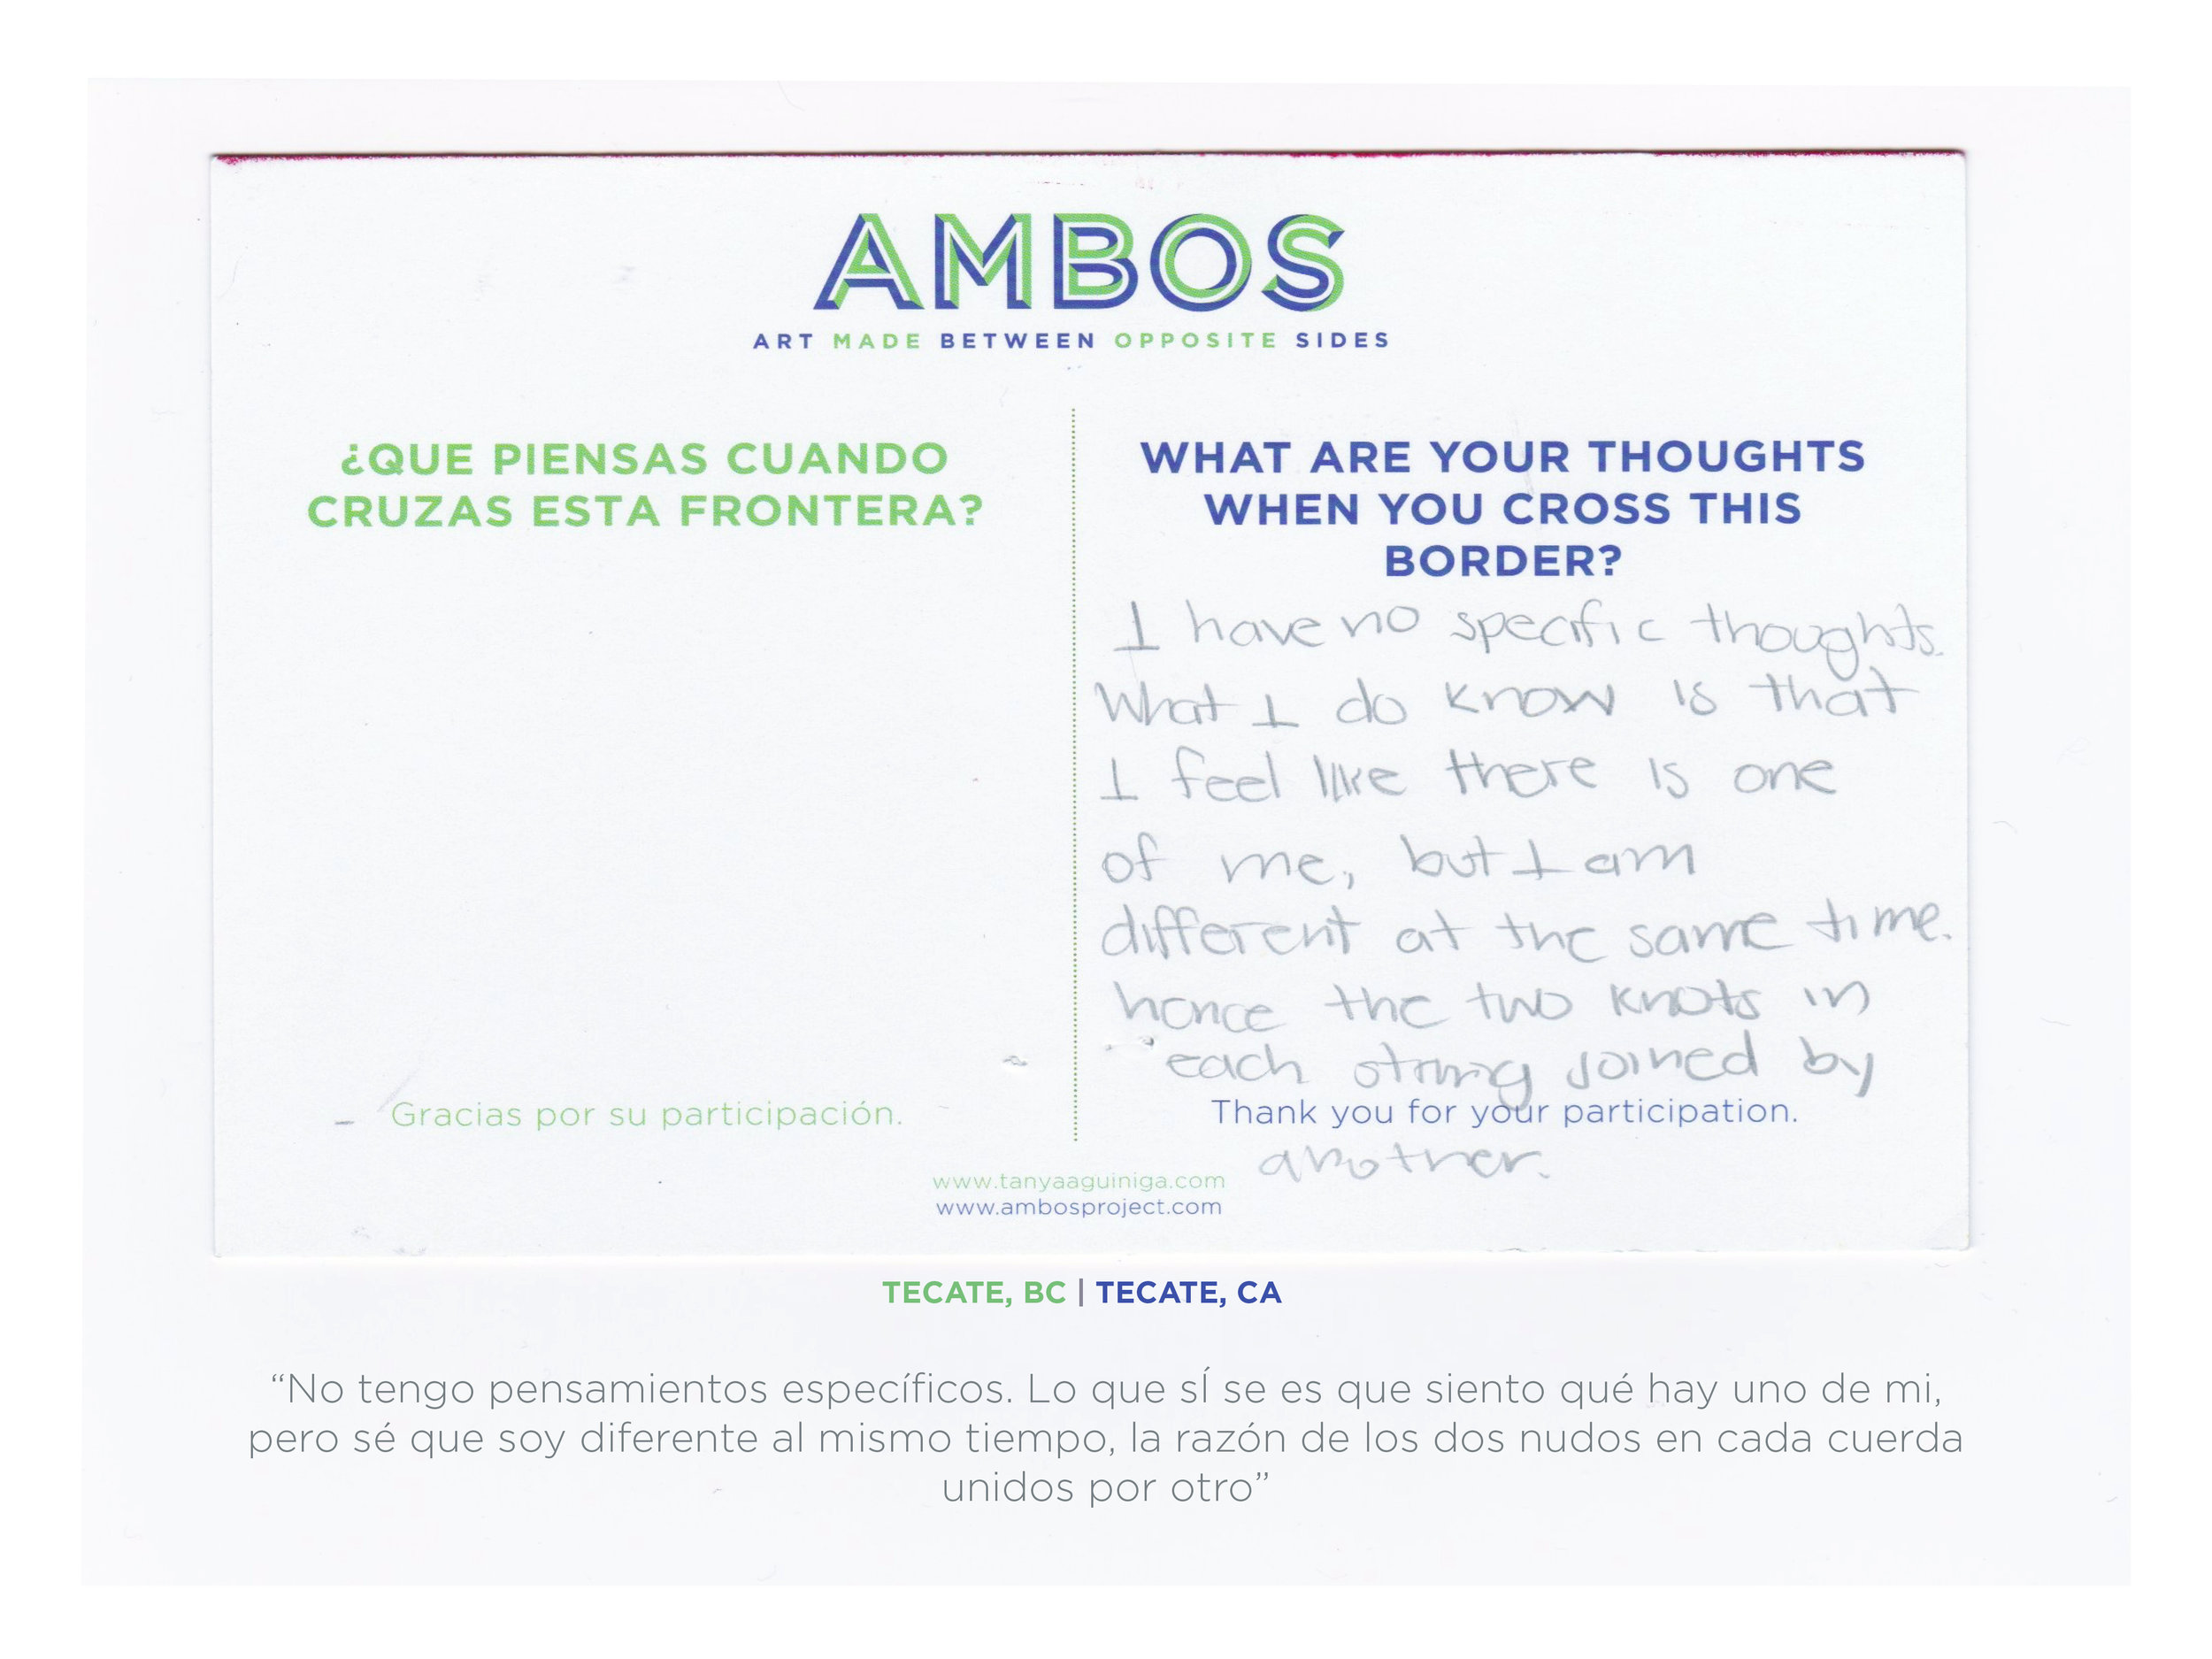 AMBOS
ART MADE BETWEEN OPPOSITE SIDES
¿QUE PIENSAS CUANDO
CRUZAS ESTA FRONTERA?
Gracias por su participación.
WHAT ARE YOUR THOUGHTS
WHEN YOU CROSS THIS
BORDER?
I have no specific thoughts.
What I do know is that
I feel like there is one
of me, but I am
different at the same time.
hence the two knots in
each string joined by
Thank you for your participation.
another.
www.tanyaaguiniga.com
www.ambosproject.com
TECATE, BC | TECATE, CA
“No tengo pensamientos específicos. Lo que sÍ se es que siento qué hay uno de mi,
pero sé que soy diferente al mismo tiempo, la razón de los dos nudos en cada cuerda
unidos por otro”